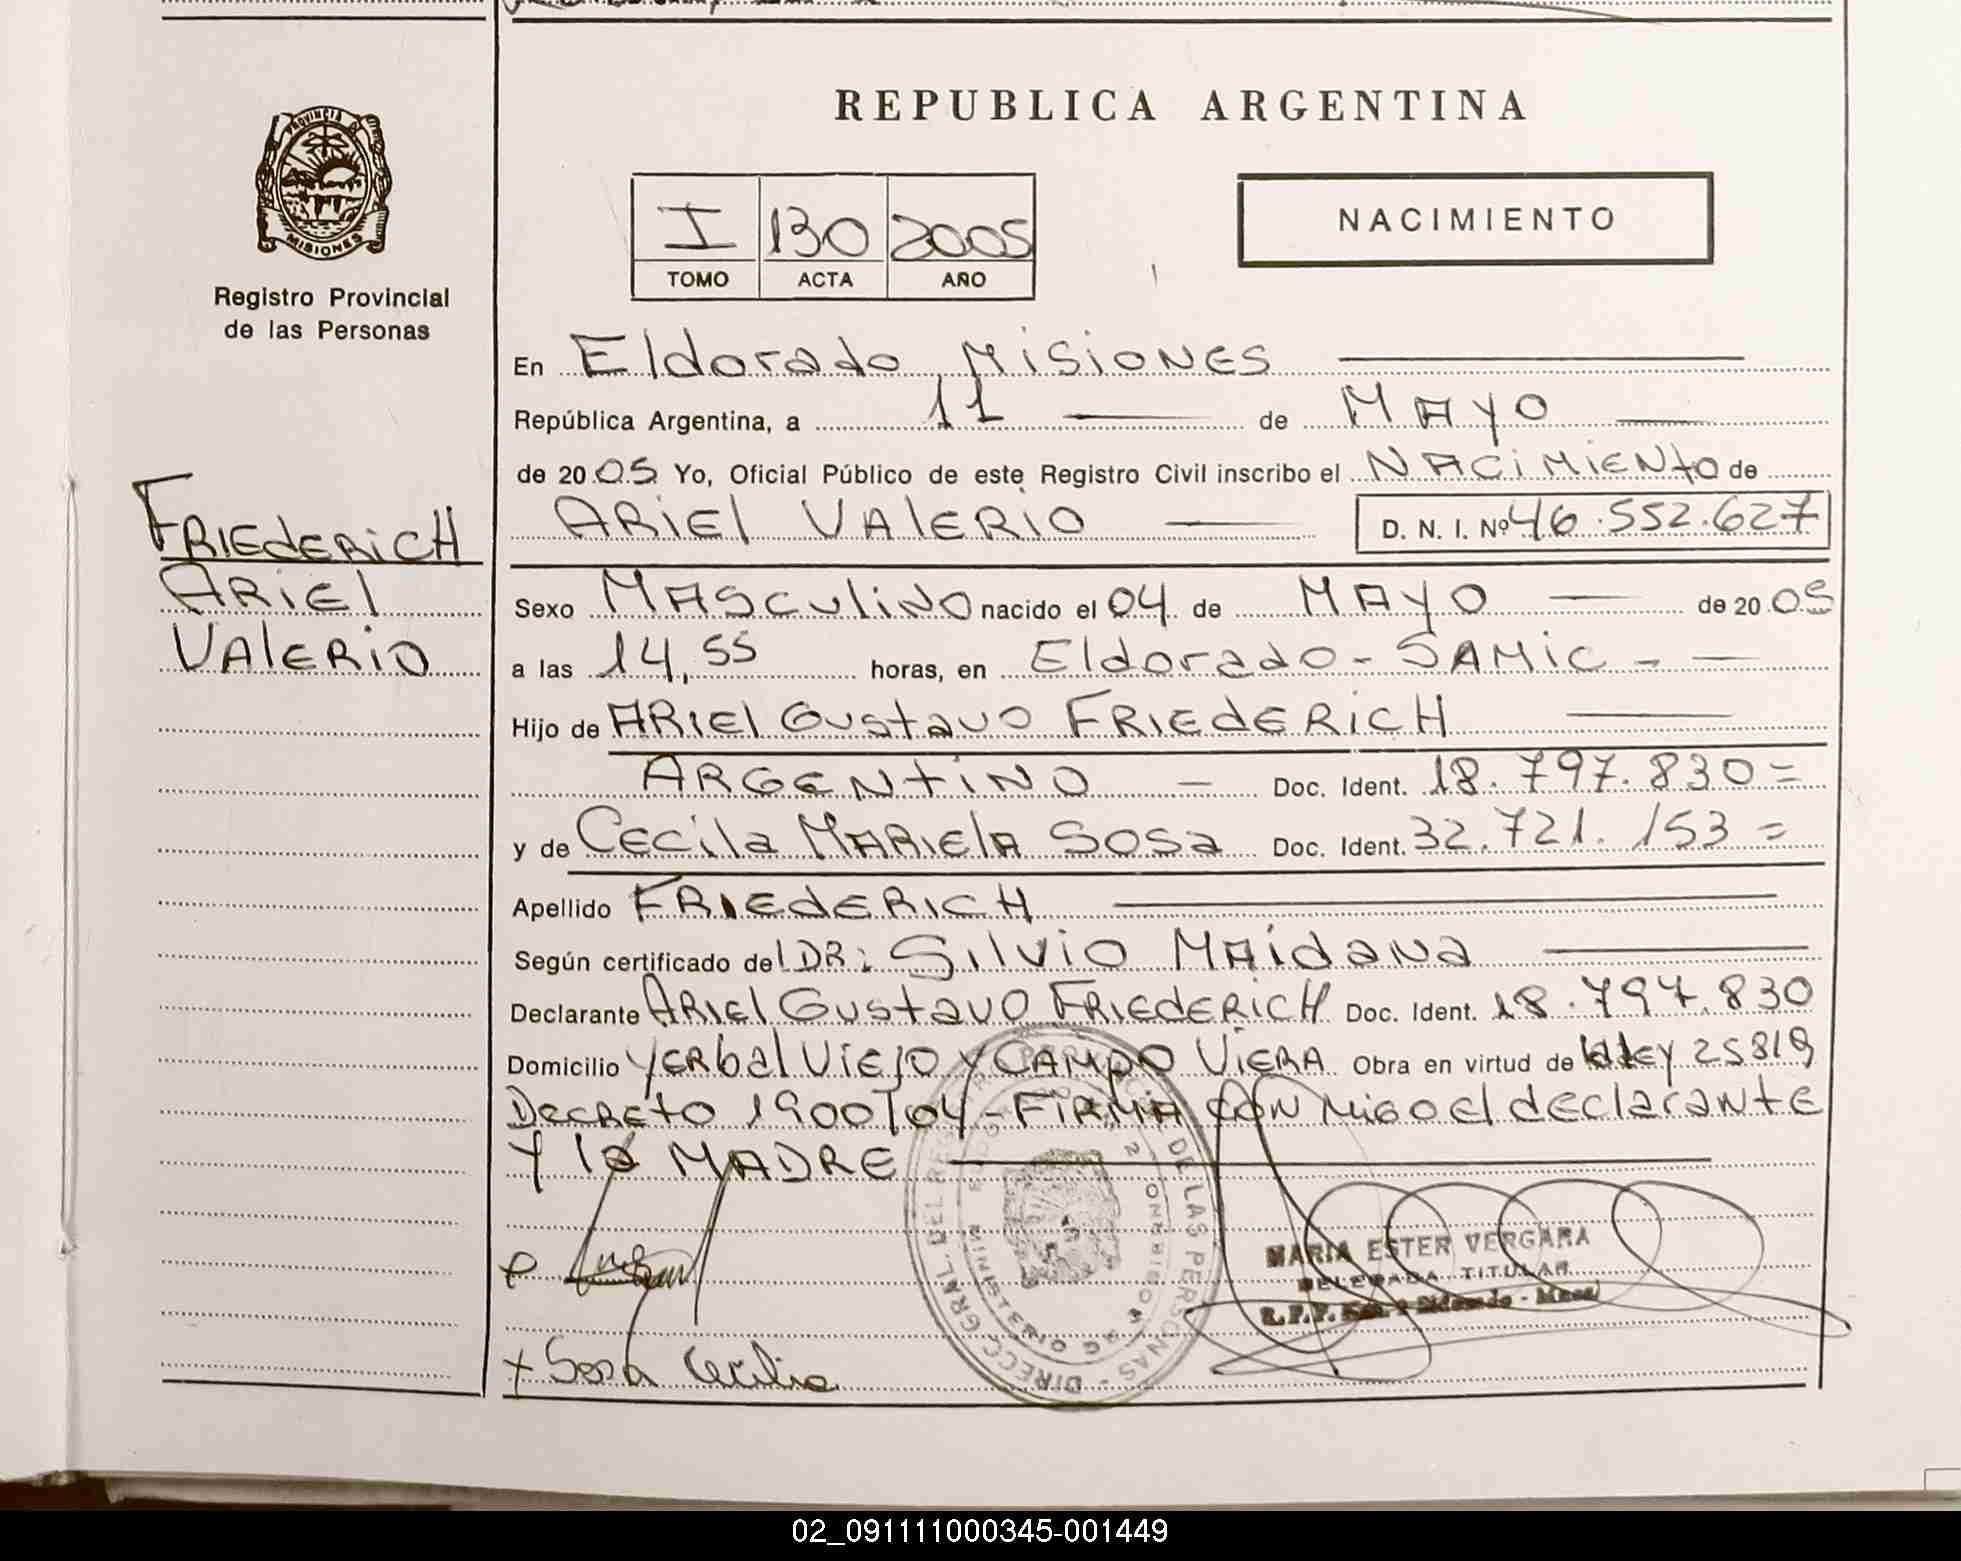 PROVINCIA DE
MISIONES
Registro Provincial
de las Personas
FRIEdERiCH
ARiEl
VAlERiO
REPUBLICA ARGENTINA
I 130 2005
TOMO ACTA AÑO
NACIMIENTO
En Eldorado, MiSiONES
República Argentina, a 11 de MAYO
de 20 05 Yo, Oficial Público de este Registro Civil inscribo el NACiMiENtO de
ARiEl VAlERiO D. N. I. Nº 46.552.627
Sexo MASculiNO nacido el 04 de MAYO de 20 05
a las 14,55 horas, en Eldorado - SAMiC -
Hijo de ARiEl Gustavo FRIEdERiCH
ARGENtiNO - Doc. Ident. 18.797.830=
y de CECila MARiElA SOSa Doc. Ident. 32.721.153=
Apellido FRIEdERICH
Según certificado del DR: Silvio MAidana
Declarante ARiEl Gustavo FRIEdERiCH Doc. Ident. 18.797.830
Domicilio YERbal ViEjO Y CAMpO ViERA Obra en virtud de la lEY 25819
DECREtO 1900/04 - FiRMA CON MiGO El dEClaraNtE
Y la MADRE
DIREC. GRAL. DEL REG. PROV. DE LAS PERSONAS
MINISTERIO DE GOBIERNO
MARIA ESTER VERGARA
DELEGADA TITULAR
R.P.P. Eldorado - Mnes
+ Sosa Cecilia
02_091111000345-001449